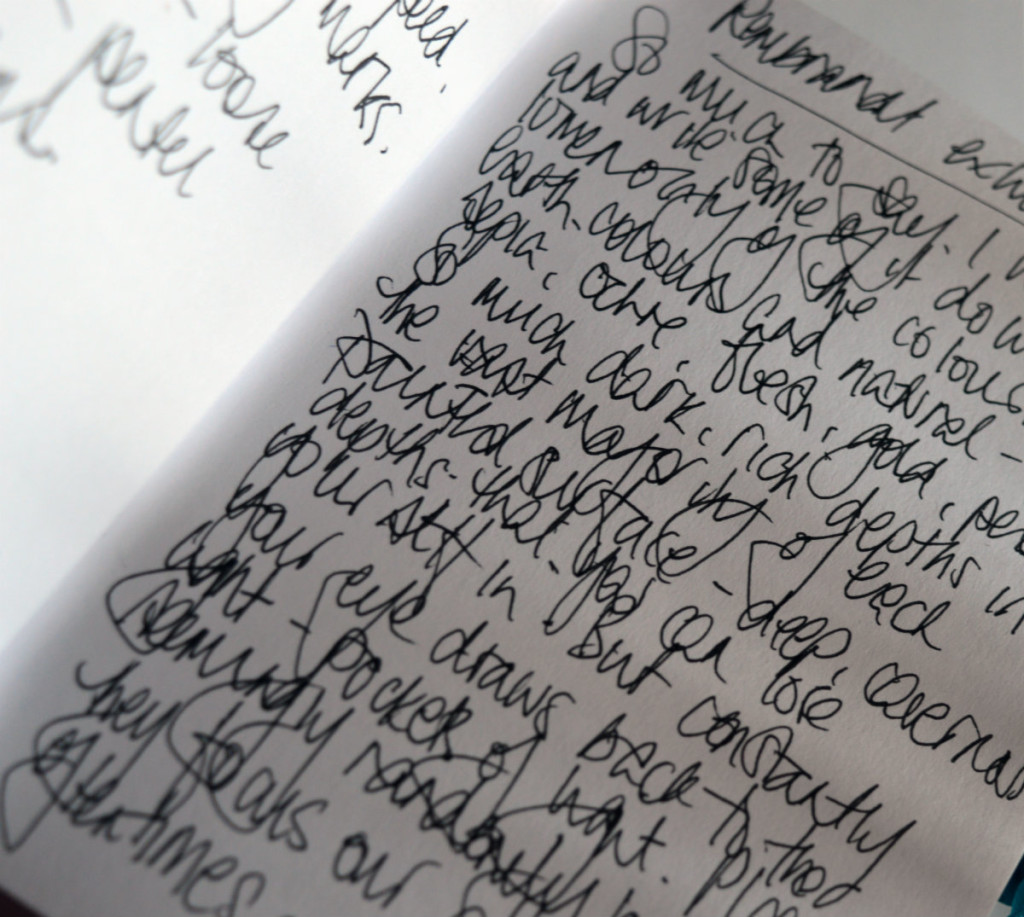 need.
marks.
loose
Rembrandt exhi
So much to say. I
and write some of it down
tonerocity of the colour
earth colours and natural -
sepia, ochre, flesh, gold,
So much dark, rich depths in
the vast majority of each
painted surface - deep, cavernous
depths. that you can lose
yourself in. But constantly
your eye draws back to the
light - pocket of light.
seemingly randomly
they focus our
oftentimes